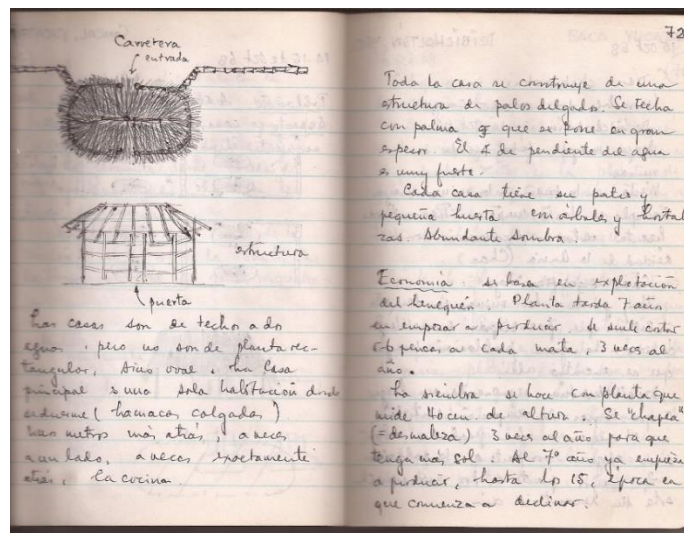 Carretera
entrada
estructura
puerta
Las casas son de techo a dos
aguas, pero no son de planta rec-
tangular, sino oval. La casa
principal es una sola habitación donde
se duerme (hamacas colgadas)
Unos metros más atrás, a veces
a un lado, a veces exactamente
atrás, la cocina
72
Toda la casa se construye de una
estructura de palos delgados. Se techa
con palma q que se pone en gran
espesor. El de pendiente del agua
es muy fuerte.
Cada casa tiene su patio y
pequeña huerta con árboles y hortali
zas. Abundante sombra.
Economía se basa en explotación
del henequén. Planta tarda 7 años
en empezar a producir. Se suele cortar
5-6 pencas a cada mata, 3 veces al
año.
La siembra se hace con planta que
mide 40 cm. de altura. Se "chapea"
(= desmaleza) 3 veces al año para que
tenga más sol. Al 7º año ya empieza
a producir, hasta los 15, época en
que comienza a declinar.